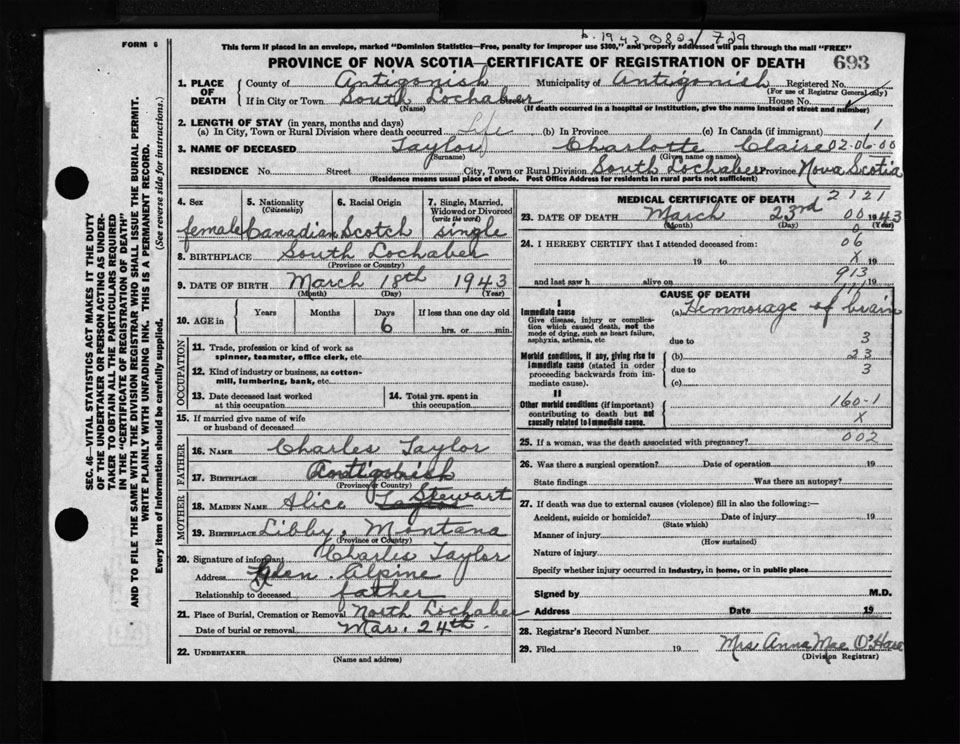 b. 1943 0802/729
FORM 6
This form if placed in an envelope, marked "Dominion Statistics—Free, penalty for improper use $300," and properly addressed will pass through the mail "FREE"
PROVINCE OF NOVA SCOTIA—CERTIFICATE OF REGISTRATION OF DEATH 693
1. PLACE OF DEATH
County of Antigonish Municipality of Antigonish Registered No.
(For use of Registrar General only)
If in City or Town South Lochaber House No.
(Name) (If death occurred in a hospital or institution, give the name instead of street and number)
2. LENGTH OF STAY (in years, months and days)
(a) In City, Town or Rural Division where death occurred Life (b) In Province (c) In Canada (if immigrant) 1
3. NAME OF DECEASED Taylor Charlotte Claire 02-06-00
(Surname) (Given name or names)
RESIDENCE No. Street City, Town or Rural Division South Lochaber Province Nova Scotia
(Residence means usual place of abode. Post Office Address for residents in rural parts not sufficient)
4. Sex 5. Nationality (Citizenship) 6. Racial Origin 7. Single, Married, Widowed or Divorced (write the word)
female Canadian Scotch single
8. BIRTHPLACE South Lochaber
(Province or Country)
9. DATE OF BIRTH March 18th 1943
(Month) (Day) (Year)
10. AGE in Years Months Days If less than one day old
6 hrs. or min.
OCCUPATION
11. Trade, profession or kind of work as
spinner, teamster, office clerk, etc.
12. Kind of industry or business, as cotton-
mill, lumbering, bank, etc.
13. Date deceased last worked at this occupation 14. Total yrs. spent in this occupation
15. If married give name of wife
or husband of deceased
FATHER
16. NAME Charles Taylor
17. BIRTHPLACE Antigonish
(Province or Country)
MOTHER
18. MAIDEN NAME Alice Taylor Stewart
19. BIRTHPLACE Libby, Montana
(Province or Country)
20. Signature of informant Charles Taylor
Address Glen Alpine
Relationship to deceased father
21. Place of Burial, Cremation or Removal North Lochaber
Date of burial or removal Mar. 24th.
22. UNDERTAKER
(Name and address)
MEDICAL CERTIFICATE OF DEATH 2121
23. DATE OF DEATH March 23rd 00 1943
(Month) (Day) (Year)
24. I HEREBY CERTIFY that I attended deceased from: 06
19 to X 19
and last saw h alive on 913 19
CAUSE OF DEATH
I
Immediate cause (a) Hemmorage of brain
Give disease, injury or complica-
tion which caused death, not the
mode of dying, such as heart failure,
asphyxia, asthenia, etc due to 3
Morbid conditions, if any, giving rise to (b) 23
immediate cause (stated in order due to 3
proceeding backwards from im-
mediate cause). (c)
II
Other morbid conditions (if important) 160-1
contributing to death but not X
causally related to immediate cause.
25. If a woman, was the death associated with pregnancy? 002
26. Was there a surgical operation? Date of operation 19
State findings Was there an autopsy?
27. If death was due to external causes (violence) fill in also the following:—
Accident, suicide or homicide? Date of injury 19
(State which)
Manner of injury
(How sustained)
Nature of injury
Specify whether injury occurred in industry, in home, or in public place
Signed by M.D.
Address Date 19
28. Registrar's Record Number
29. Filed 19 Mrs Anna Mae O'Hare
(Division Registrar)
SEC. 46—VITAL STATISTICS ACT MAKES IT THE DUTY
OF THE UNDERTAKER OR PERSON ACTING AS UNDER-
TAKER TO OBTAIN ALL THE PARTICULARS REQUIRED
IN THE "CERTIFICATE OF REGISTRATION OF DEATH"
AND TO FILE THE SAME WITH THE DIVISION REGISTRAR WHO SHALL ISSUE THE BURIAL PERMIT.
WRITE PLAINLY WITH UNFADING INK. THIS IS A PERMANENT RECORD.
Every item of information should be carefully supplied. (See reverse side for instructions.)